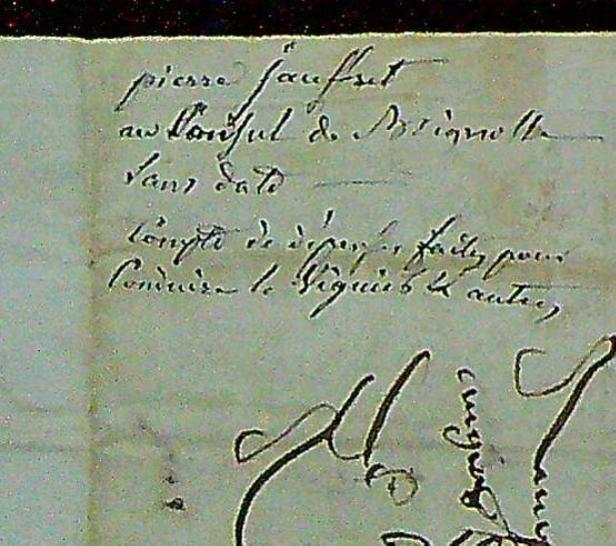 pierre Jauffret
au Consul de Brignolle
Sans date
Compte de dépenses faites pour
Conduire le Viguier & autres